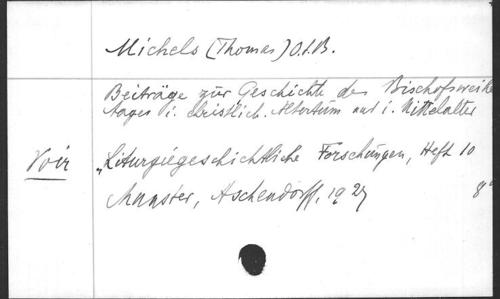 Michels (Thomas) O.S.B.
Beiträge zur Geschichte des Bischofsweihe
tages i. christlich. Altertum und i. Mittelalter
Voir „Liturgiegeschichtliche Forschungen, Heft 10
Munster, Aschendorff, 1927 8°